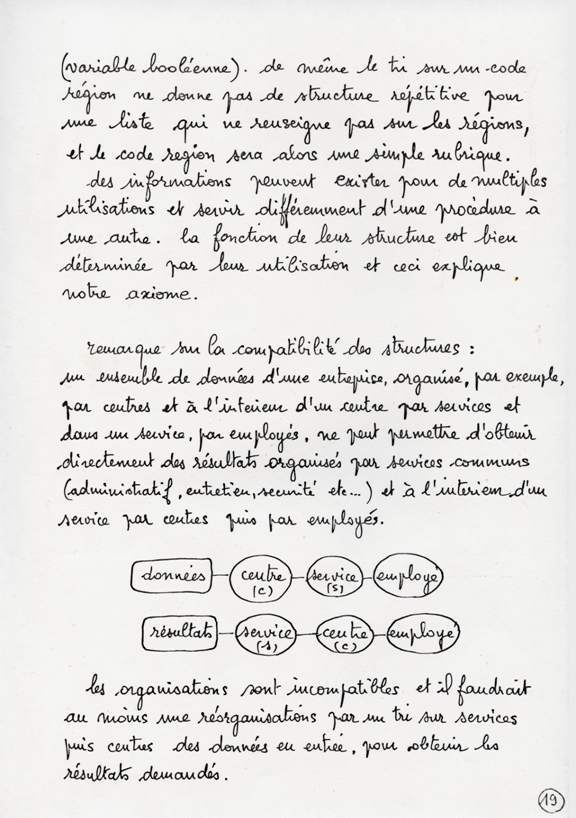 (variable booléenne). de même le tri sur un code
région ne donne pas de structure répétitive pour
une liste qui ne renseigne pas sur les régions,
et le code region sera alors une simple rubrique.
des informations peuvent exister pour de multiples
utilisations et servir différemment d'une procédure à
une autre. la fonction de leur structure est bien
déterminée par leur utilisation et ceci explique
notre axiome.
remarque sur la compatibilité des structures :
un ensemble de données d'une entreprise, organisé, par exemple,
par centres et à l'intérieur d'un centre par services et
dans un service, par employés, ne peut permettre d'obtenir
directement des résultats organisés par services communs
(administratif, entretien, securité etc...) et à l'interieur d'un
service par centres puis par employés.
données centre (c) service (s) employé
résultats service (s) centre (c) employé
les organisations sont incompatibles et il faudrait
au moins une réorganisations par un tri sur services
puis centres des données en entrée, pour obtenir les
résultats demandés.
19